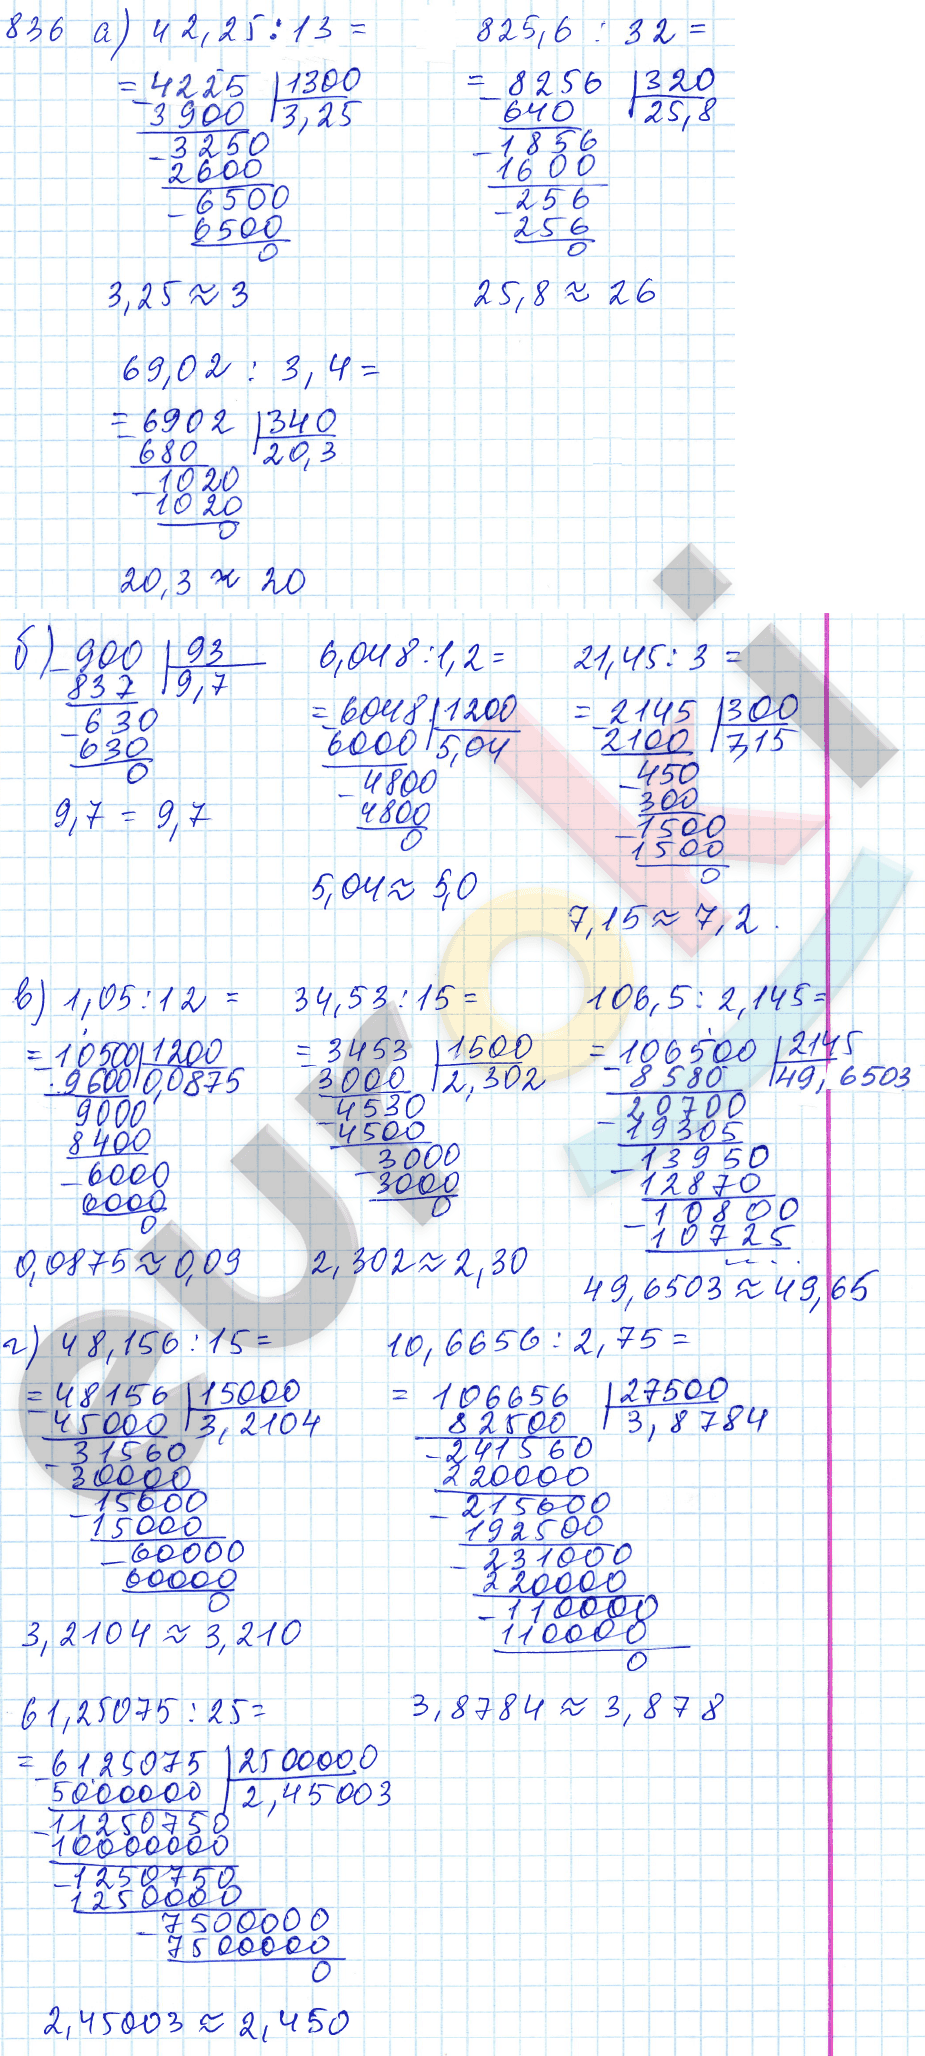 836 а) 42,25:13= 825,6 : 32=
=4225 |1300 =8256 |320
3900 3,25 640 25,8
-3250 -1856
2600 1600
-6500 -256
6500 256
0 0
3,25≈3 25,8≈26
69,02 : 3,4=
=6902 |340
680 20,3
-1020
1020
0
20,3≈20
б) -900 |93 6,048:1,2= 21,45:3=
837 9,7 =6048 |1200 =2145 |300
-630 6000 5,04 2100 7,15
630 -4800 -450
0 4800 300
9,7=9,7 0 -1500
1500
0
5,04≈5,0
7,15≈7,2.
в) 1,05:12= 34,53:15= 106,5:2,145=
=10500 |1200 =3453 |1500 =106500 |2145
9600 0,0875 3000 2,302 8580 49,6503
9000 -4530 20700
8400 4500 -19305
-6000 -3000 -13950
6000 3000 12870
0 0 -10800
10725
....
0,0875≈0,09 2,302≈2,30
49,6503≈49,65
г) 48,156:15= 10,6656:2,75=
=48156 |15000 = 106656 |27500
45000 3,2104 82500 3,8784
-31560 -241560
30000 220000
-15600 -215600
15000 192500
-60000 -231000
60000 220000
0 -110000
110000
0
3,2104≈3,210
61,25075:25= 3,8784≈3,878
=6125075 |2500000
5000000 2,45003
-11250750
10000000
-1250750
1250000
-7500000
7500000
0
2,45003≈2,450
euroki